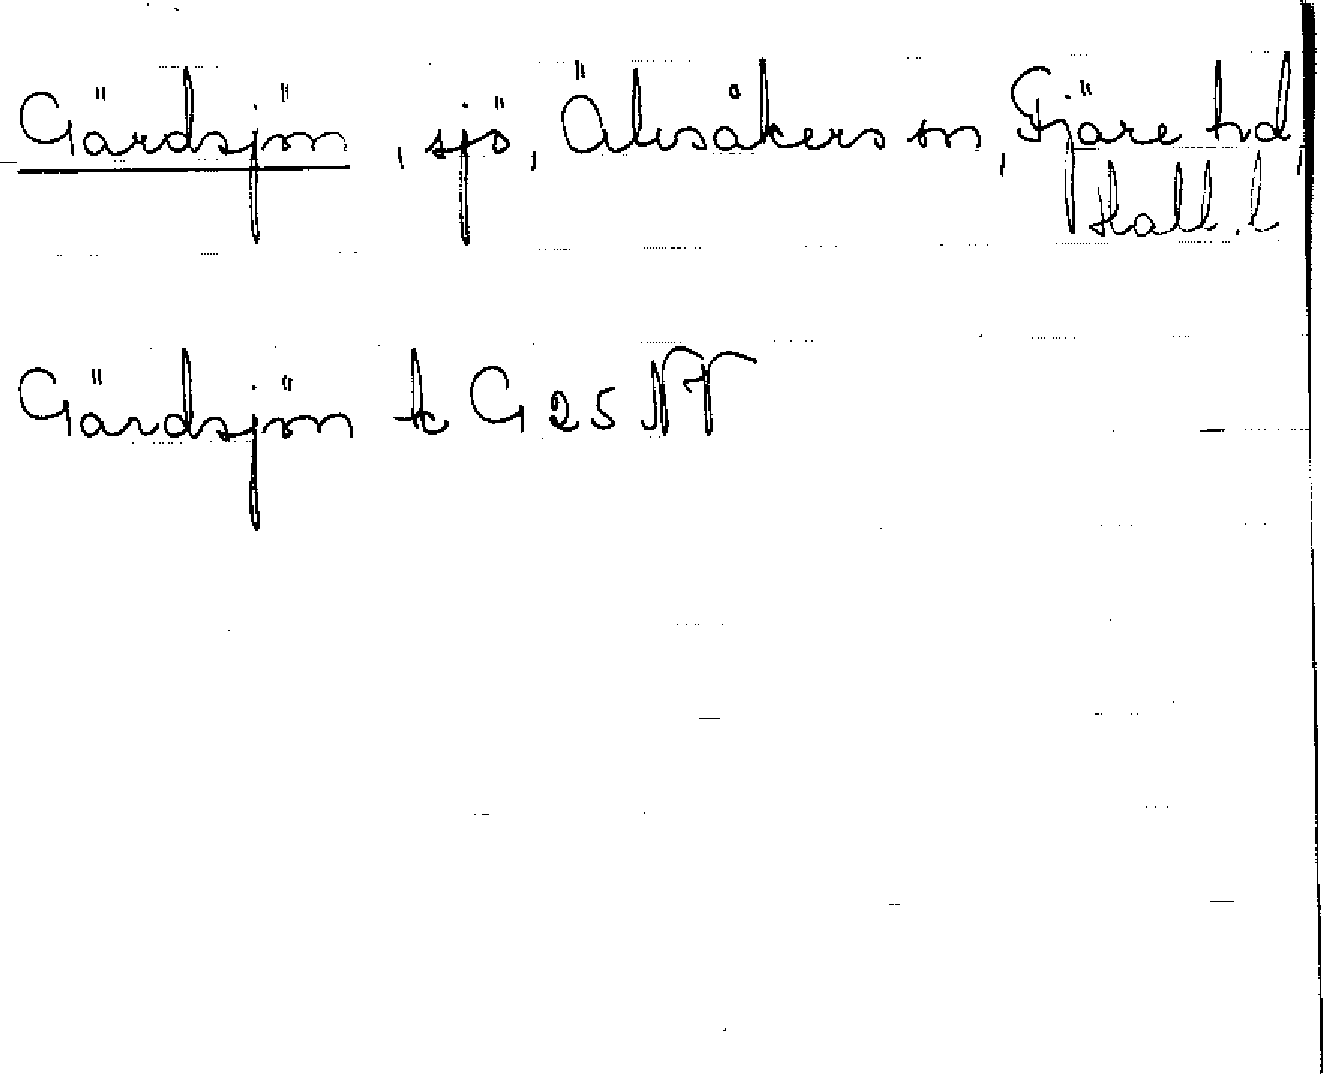 Gärdsjön, sjö, Älvsåkers sn, Fjäre hd,
Hall. l
Gärdsjön tc G 25 NV